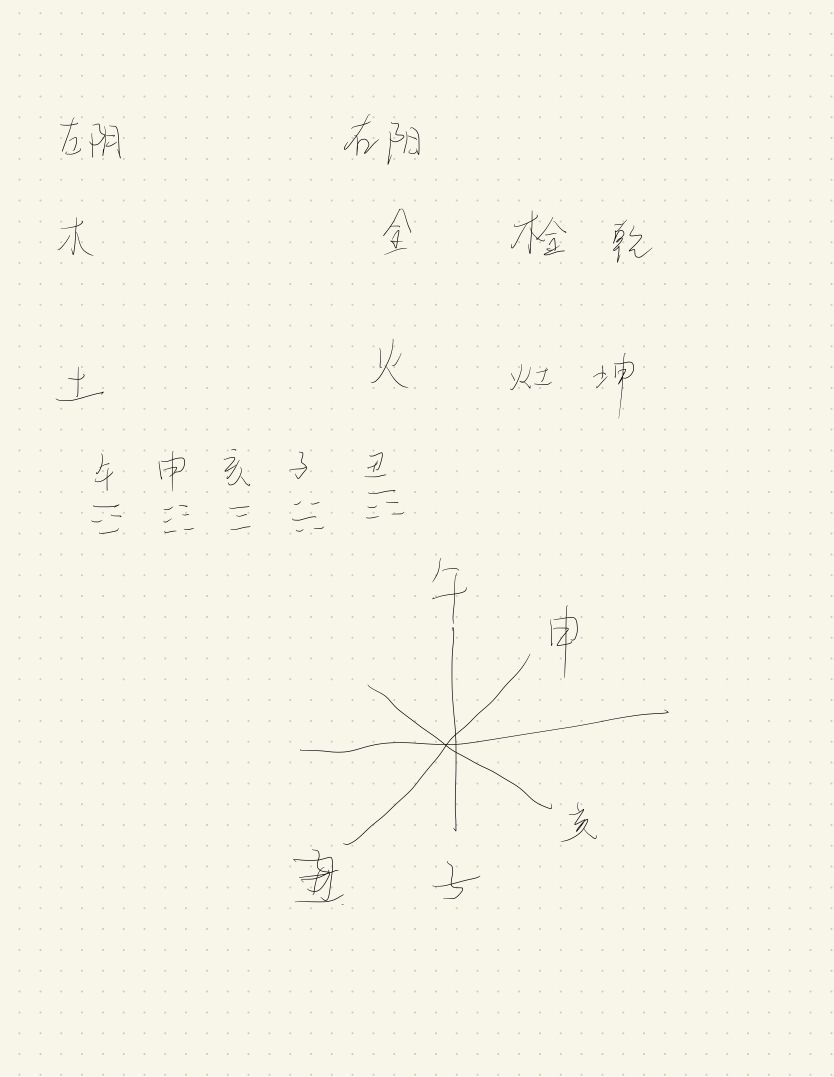 左阴 右阳
木 金 桧 乾
土 火 灶 坤
午 申 亥 子 丑
☲ ☷ ☰ ☵ ☶
午
申
亥
丑 子